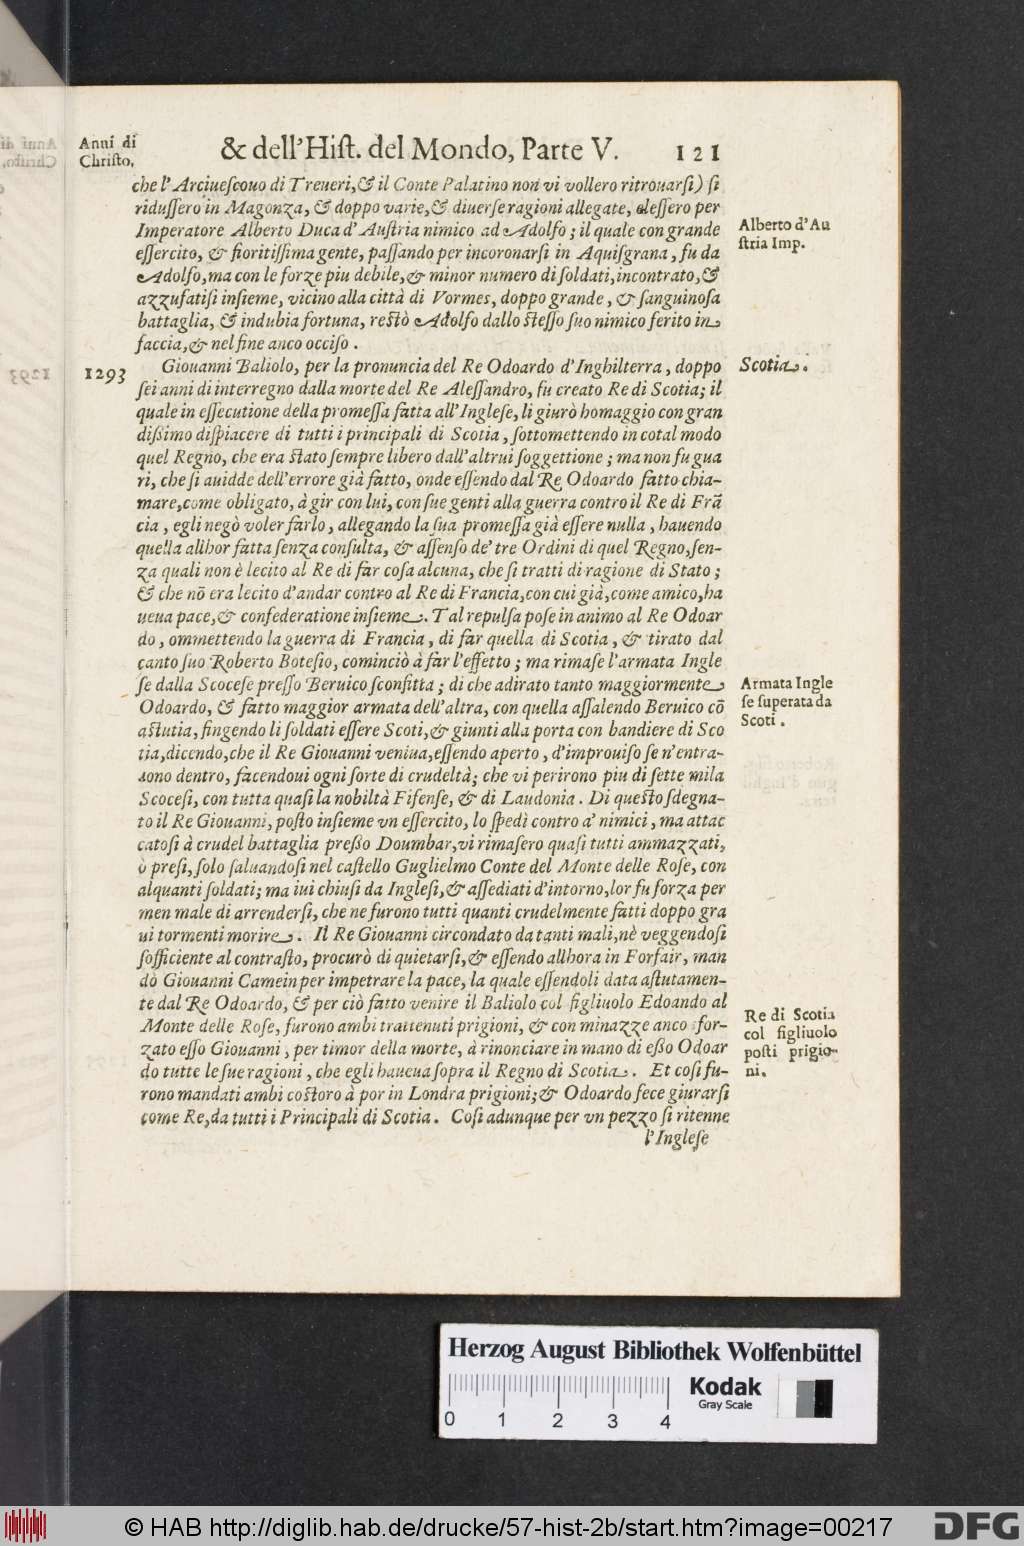 Anni di
Chriſto,
& dell'Hiſt. del Mondo, Parte V. 121
che l'Arciueſcouo di Treueri, & il Conte Palatino non vi vollero ritrouarſi) ſi
riduſſero in Magonza, & doppo varie, & diuerſe ragioni allegate, eleſſero per
Imperatore Alberto Duca d'Auſtria nimico ad Adolfo; il quale con grande
eſſercito, & fioritiſſima gente, paſſando per incoronarſi in Aquiſgrana, fu da
Adolfo, ma con le forze piu debile, & minor numero di ſoldati, incontrato, &
azzufatiſi inſieme, vicino alla città di Vormes, doppo grande, & ſanguinoſa
battaglia, & indubia fortuna, reſtò Adolfo dallo ſteſſo ſuo nimico ferito in
faccia, & nel fine anco occiſo.
Alberto d'Au
ſtria Imp.
1293
Giouanni Baliolo, per la pronuncia del Re Odoardo d'Inghilterra, doppo
ſei anni di interregno dalla morte del Re Aleſſandro, fu creato Re di Scotia; il
quale in eſſecutione della promeſſa fatta all'Ingleſe, li giurò homaggio con gran
diſſimo diſpiacere di tutti i principali di Scotia, ſottomettendo in cotal modo
quel Regno, che era ſtato ſempre libero dall'altrui ſoggettione; ma non fu gua
ri, che ſi auidde dell'errore già fatto, onde eſſendo dal Re Odoardo fatto chia-
mare, come obligato, à gir con lui, con ſue genti alla guerra contro il Re di Frã
cia, egli negò voler farlo, allegando la ſua promeſſa già eſſere nulla, hauendo
quella allhor fatta ſenza conſulta, & aſſenſo de' tre Ordini di quel Regno, ſen-
za quali non è lecito al Re di far coſa alcuna, che ſi tratti di ragione di Stato;
& che nõ era lecito d'andar contro al Re di Francia, con cui già, come amico, ha
ueua pace, & confederatione inſieme. Tal repulſa poſe in animo al Re Odoar
do, ommettendo la guerra di Francia, di far quella di Scotia, & tirato dal
canto ſuo Roberto Boteſio, cominciò à far l'effetto; ma rimaſe l'armata Ingle
ſe dalla Scoceſe preſſo Beruico ſconfitta; di che adirato tanto maggiormente
Odoardo, & fatto maggior armata dell'altra, con quella aſſalendo Beruico cõ
aſtutia, fingendo li ſoldati eſſere Scoti, & giunti alla porta con bandiere di Sco
tia, dicendo, che il Re Giouanni veniua, eſſendo aperto, d'improuiſo ſe n'entra-
rono dentro, facendoui ogni ſorte di crudeltà; che vi perirono piu di ſette mila
Scoceſi, con tutta quaſi la nobiltà Fifenſe, & di Laudonia. Di queſto ſdegna-
to il Re Giouanni, poſto inſieme vn eſſercito, lo ſpedì contro a' nimici, ma attac
catoſi à crudel battaglia preſſo Doumbar, vi rimaſero quaſi tutti ammazzati,
ò preſi, ſolo ſaluandoſi nel caſtello Guglielmo Conte del Monte delle Roſe, con
alquanti ſoldati; ma iui chiuſi da Ingleſi, & aſſediati d'intorno, lor fu forza per
men male di arrenderſi, che ne furono tutti quanti crudelmente fatti doppo gra
ui tormenti morire. Il Re Giouanni circondato da tanti mali, nè veggendoſi
ſofficiente al contraſto, procurò di quietarſi, & eſſendo allhora in Forfair, man
dò Giouanni Camein per impetrare la pace, la quale eſſendoli data aſtutamen-
te dal Re Odoardo, & per ciò fatto venire il Baliolo col figliuolo Edoando al
Monte delle Roſe, furono ambi trattenuti prigioni, & con minazze anco for-
zato eſſo Giouanni, per timor della morte, à rinonciare in mano di eſſo Odoar
do tutte le ſue ragioni, che egli haueua ſopra il Regno di Scotia. Et coſi fu-
rono mandati ambi coſtoro à por in Londra prigioni; & Odoardo fece giurarſi
come Re, da tutti i Principali di Scotia. Coſi adunque per vn pezzo ſi ritenne
l'Ingleſe
Scotia.
Armata Ingle
ſe ſuperata da
Scoti.
Re di Scotia
col figliuolo
poſti prigio-
ni.
Herzog August Bibliothek Wolfenbüttel
0 1 2 3 4
Kodak
Gray Scale
© HAB http://diglib.hab.de/drucke/57-hist-2b/start.htm?image=00217
DFG